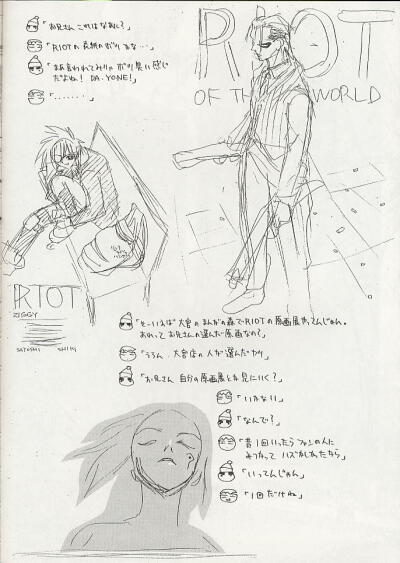 「お兄さん これはなあに?」
「RIOTの表紙のボツ かな…」
「まあ言われてみりゃボツ臭い感じ
だよね! DA.YONE!」
「・・・・・・」
RIOT
OF THE WORLD
RIOT
ZIGGY
SATOSHI SHIKI
「そーいえば 大宮の まんがの森で RIOTの原画展やってんじゃん。
あれって お兄さんが選んだ原画なの?」
「ううん、大宮店の人が選んだヤツ」
「お兄さん 自分の原画展とか見に行く?」
「いかない」
「なんで?」
「昔1回いったらファンの人に
みつかって ハズかしかったから」
「いってんじゃん」
「1回だけね」